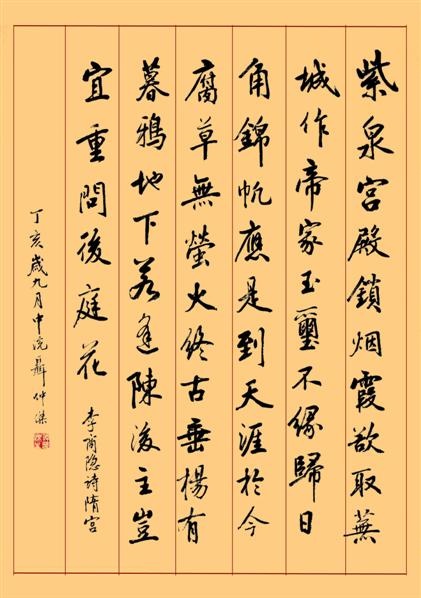 紫泉宫殿鎖烟霞欲取蕪
城作帝家玉璽不缘歸日
角錦帆應是到天涯於今
腐草無螢火終古垂楊有
暮鴉地下若逢陳後主豈
宜重問後庭花
李商隐诗隋宫
丁亥歲九月中浣聶仲傑